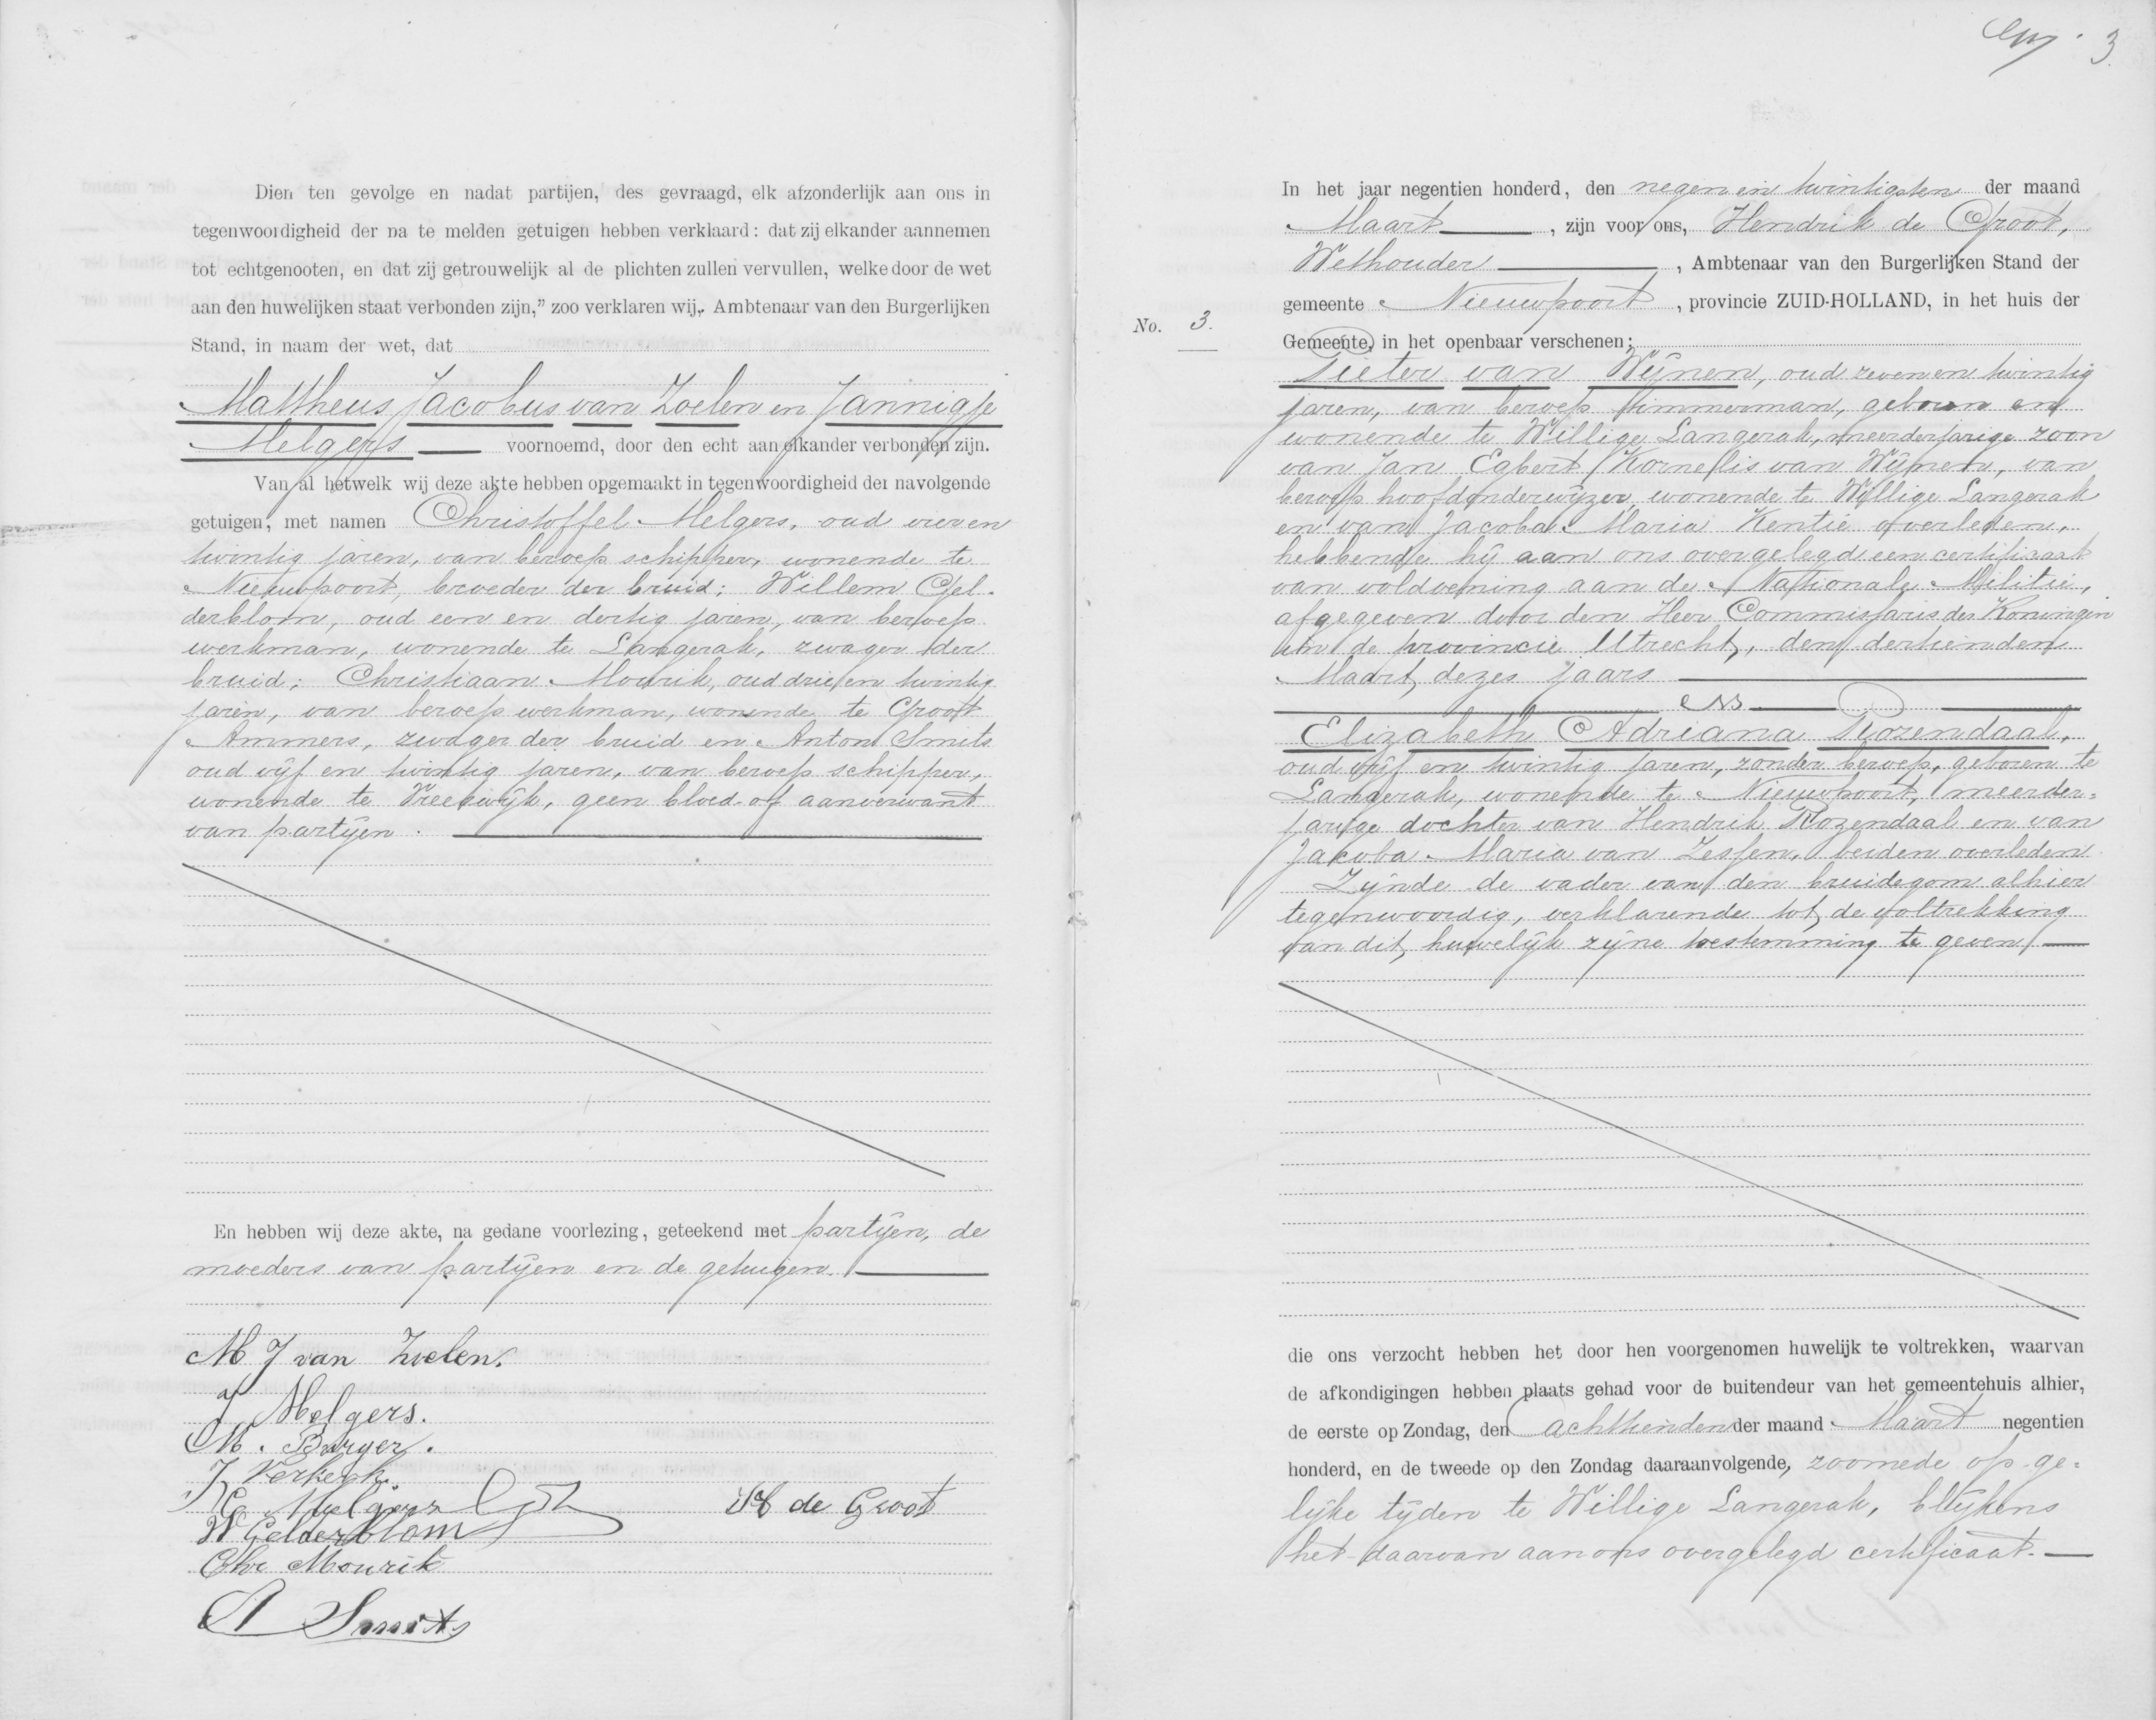 Dien ten gevolge en nadat partijen, des gevraagd, elk afzonderlijk aan ons in
tegenwoordigheid der na te melden getuigen hebben verklaard: dat zij elkander aannemen
tot echtgenooten, en dat zij getrouwelijk al de plichten zullen vervullen, welke door de wet
aan den huwelijken staat verbonden zijn,” zoo verklaren wij, Ambtenaar van den Burgerlijken
Stand, in naam der wet, dat
Mattheus Jacobus van Zoelen en Jannigje
Melgers voornoemd, door den echt aan elkander verbonden zijn.
Van al hetwelk wij deze akte hebben opgemaakt in tegenwoordigheid der navolgende
getuigen, met namen Christoffel Melgers, oud vier en
twintig jaren, van beroep schipper, wonende te
Nieuwpoort, broeder der bruid; Willem Gel-
derblom, oud een en dertig jaren, van beroep
werkman, wonende te Langerak, zwager der
bruid; Christiaan Mourik, oud drie en twintig
jaren, van beroep werkman, wonende te Groot
Ammers, zwager der bruid en Anton Smits
oud vijf en twintig jaren, van beroep schipper,
wonende te Vreeswijk, geen bloed- of aanverwant
van partijen.
En hebben wij deze akte, na gedane voorlezing, geteekend met partijen, de
moeders van partijen en de getuigen.
M J van Zoelen.
J Melgers.
M. Burger.
J Verkerk.
C. Melgers
H de Groot
W Gelderblom
Chr Mourik
A Smits
3
In het jaar negentien honderd, den negen en twintigsten der maand
Maart, zijn voor ons, Hendrik de Groot,
Wethouder, Ambtenaar van den Burgerlijken Stand der
gemeente Nieuwpoort, provincie ZUID-HOLLAND, in het huis der
No. 3.
Gemeente, in het openbaar verschenen;
Pieter van Wijnen, oud zeven en twintig
jaren, van beroep timmerman, geboren en
wonende te Willige Langerak, meerderjarige zoon
van Jan Egbert Kornelis van Wijnen, van
beroep hoofdonderwijzer, wonende te Willige Langerak
en van Jacoba Maria Kentie overleden,
hebbende hij aan ons overgelegd een certificaat
van voldoening aan de Nationale Militie,
afgegeven door den Heer Commissaris der Koningin
in de provincie Utrecht, den dertienden
Maart dezes jaars
en
Elizabeth Adriana Rozendaal,
oud vijf en twintig jaren, zonder beroep, geboren te
Langerak, wonende te Nieuwpoort, meerder-
jarige dochter van Hendrik Rozendaal en van
Jakoba Maria van Zessen, beiden overleden
Zijnde de vader van den bruidegom alhier
tegenwoordig, verklarende tot de voltrekking
van dit huwelijk zijne toestemming te geven.
die ons verzocht hebben het door hen voorgenomen huwelijk te voltrekken, waarvan
de afkondigingen hebben plaats gehad voor de buitendeur van het gemeentehuis alhier,
de eerste op Zondag, den achttienden der maand Maart negentien
honderd, en de tweede op den Zondag daaraanvolgende, zoomede op ge-
lijke tijden te Willige Langerak, blijkens
het daarvan aan ons overgelegd certificaat.